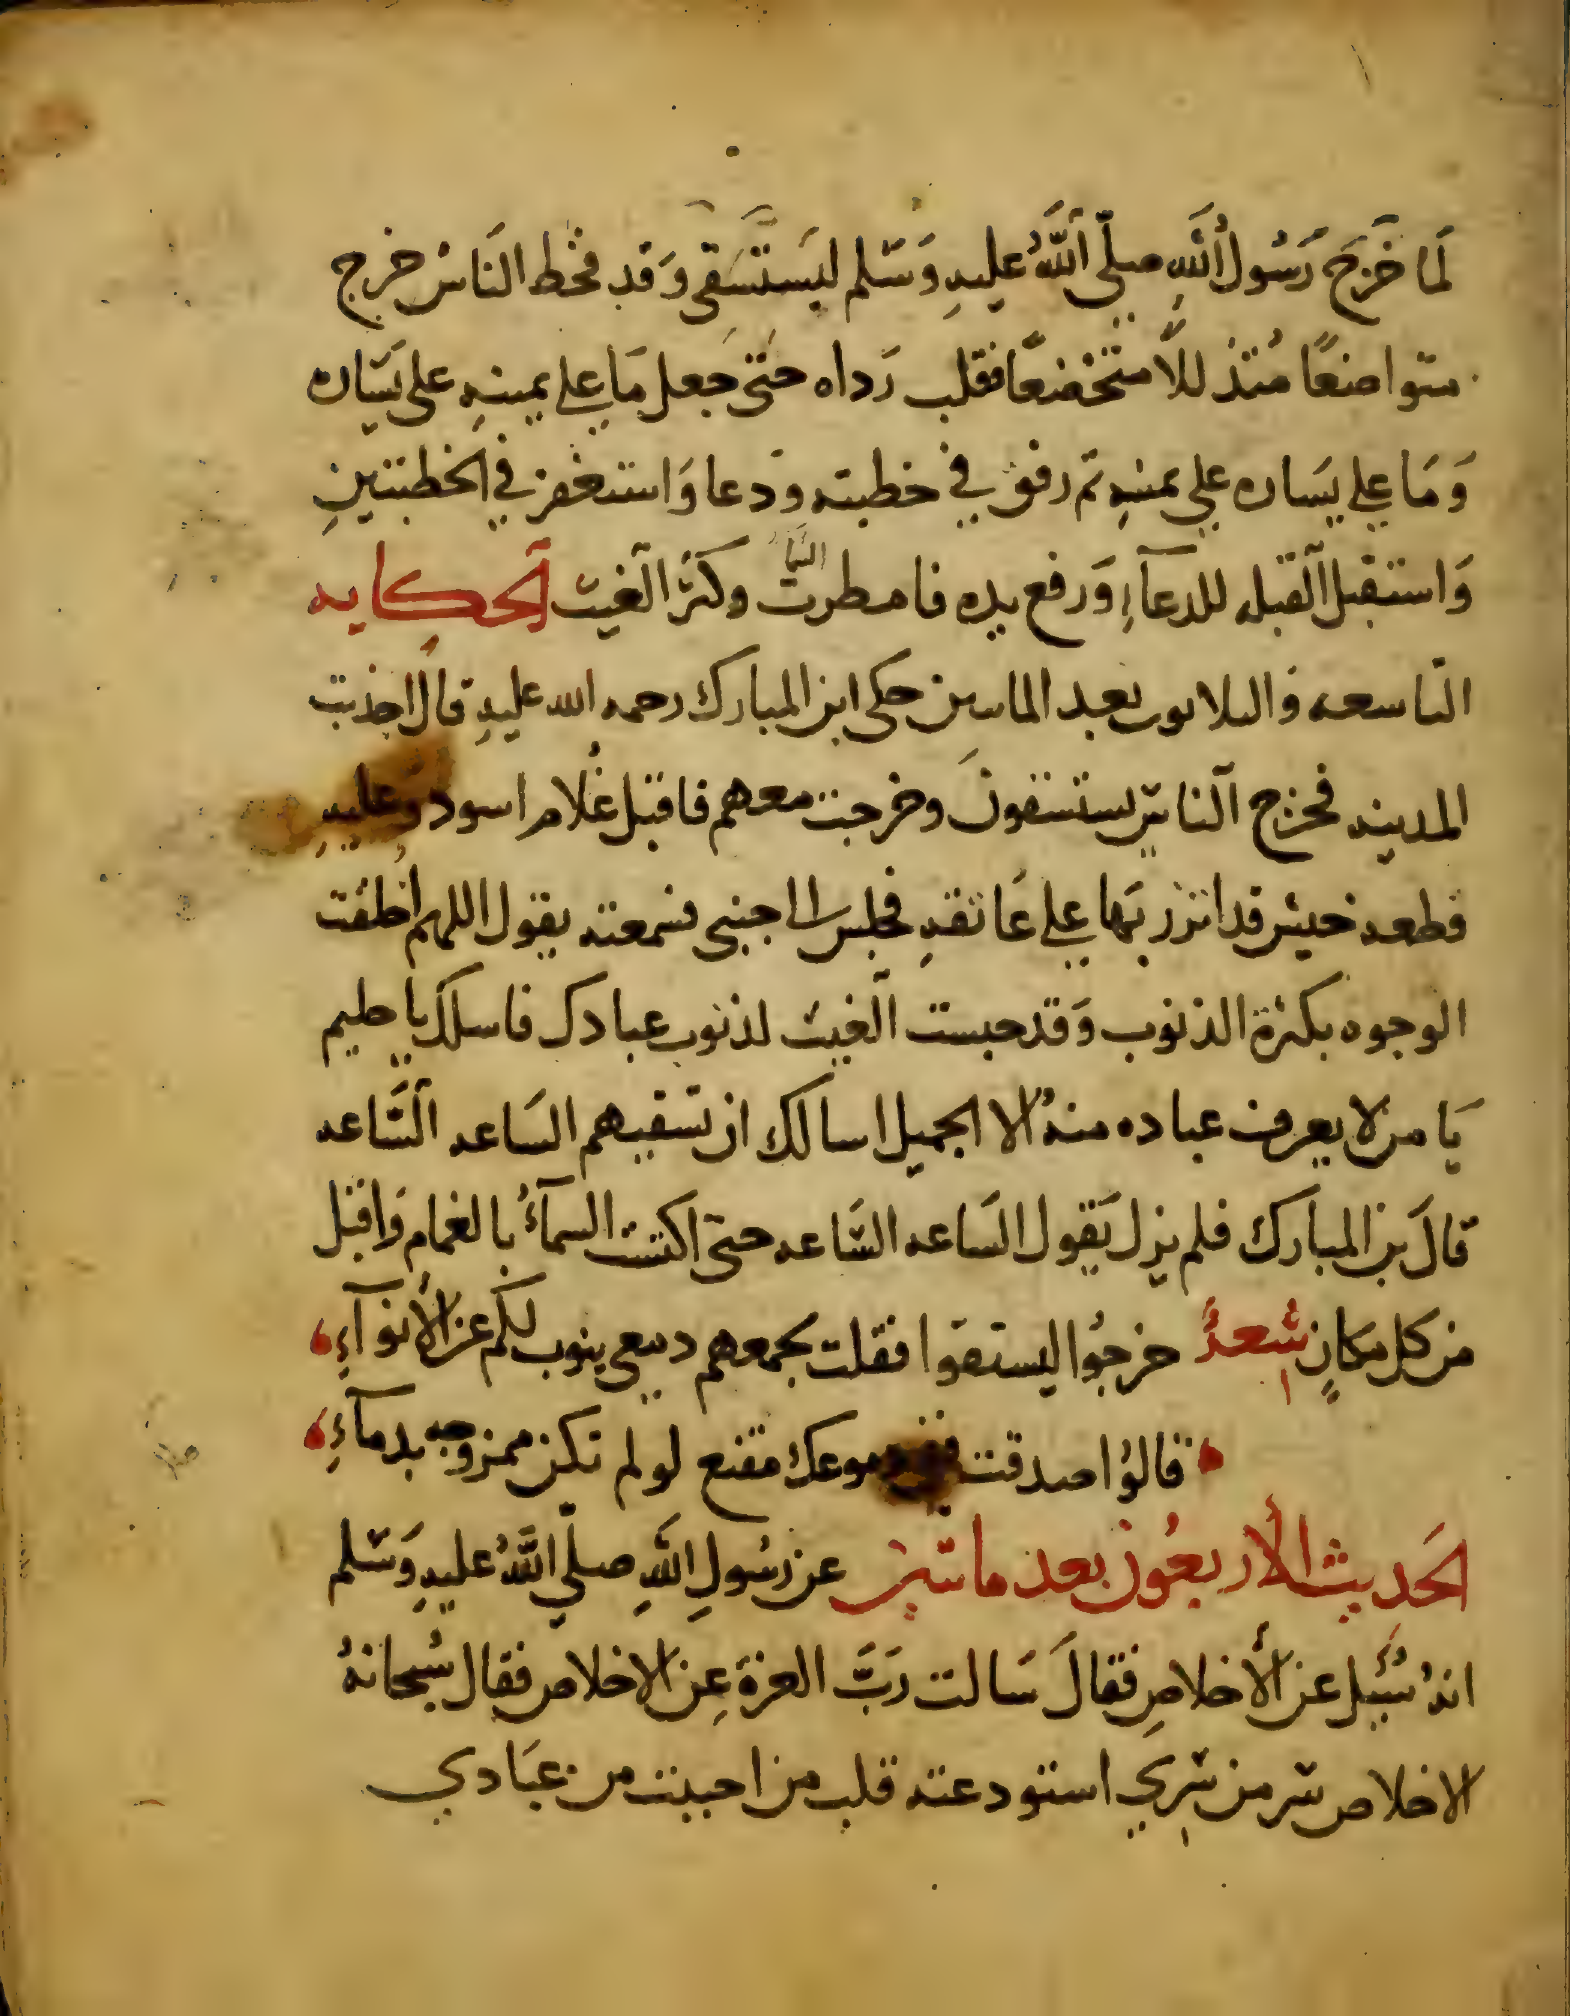 لَمَا خَرَجَ رَسُول اللهِ صلّي اللَّهُ عليهِ وَسَلم ليَستَسَقى وَقد قحط النَاسُ خرج
متواضعًا مُتذللًا متخضعًا فقلب رَداه حتىَ جَعل مَا علي يمينهِ على يَسَاره
وَمَا علي يسَاره علي يمنهِ ثم رفق في خطبته ودَعا وَاستغفر في الخطبتينِ
وَاستقبل القبله للدعآءِ وَرفع يده فامطرت السَّمَا وكثر الغيث الحكايه
التاسعه والثلاثون بعد الماسن حكى ابن المبارك رحمه الله عليهِ قال اجذبت
المدينه فخرج الناس يستسقونَ وخرجت معهم فاقبل غُلام اسود وعليهِ
قطعه خيش قد اتزر بهَا علي عَاتقهِ فجلس الا جنبي فسمعته يقول اللهم أخلقت
الوجوه بكثرة الذنوب وَقد حبست الغيث لذنوب عبادك فاسلك يا حليم
يَا من لا يعرف عباده منهُ الا الجميل اسالك ان تسقيهم السَاعه السَّاعه
قالَ بن المبارك فلم يزل يَقول السَاعه السَّاعه حتىَ اكتست السمآءُ بالغمام وَاقبل
من كل مكانٍ شعرُ خرجُوا ليستقوا فقلت بجمعهم دمعي ينوب لكم عن الأنوآءِ
قالوُا صدقت ففي دموعك مقنع لو لم تكن ممزوجه بدمآءِ
الحَديث الأربعُون بعد ماتين عن رسُولِ اللهِ صلّي اللَّهُ عليهِ وَسَلم
انهُ سُئيل عن الأخلاصِ فقالَ سَالت ربَّ العزة عِن الاخلاص فقال سُبحانهُ
الاخلاص سَر من سَرِي استودعته قلب من احببت من عبَادي